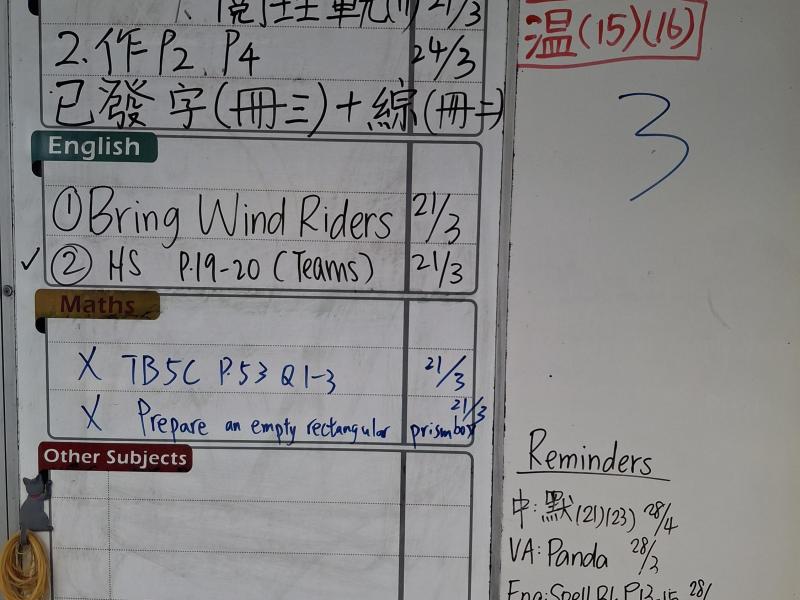 單元(1) 21/3
2. 作 P2、P4 24/3
已發 字(冊三)+綜(冊二)
English
① Bring Wind Riders 21/3
✓ ② HS P.19-20 (Teams) 21/3
Maths
X TB5C P.53 Q1-3 21/3
X Prepare an empty rectangular prism box 21/3
Other Subjects
溫(15)(16)
3
Reminders
中: 默(21)(23) 28/4
VA: Panda 28/3
Eng: Spell P.13-15 28/